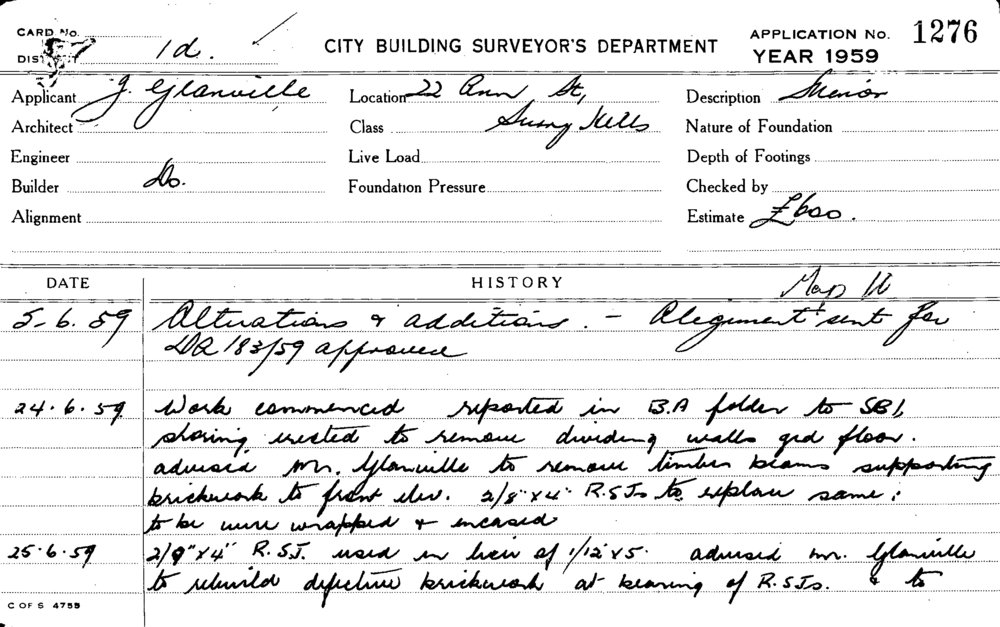 CARD No.
DIST 1d. CITY BUILDING SURVEYOR'S DEPARTMENT APPLICATION No. 1276
YEAR 1959
Applicant J. Glanville Location 22 Ann St, Description Minor
Architect Class Surry Hills Nature of Foundation
Engineer Live Load Depth of Footings
Builder Do. Foundation Pressure Checked by
Alignment Estimate £600.
DATE HISTORY Map 16
5-6.59 Alterations & additions. - Alignment sent for
DA 183/59 approved
24.6.59 Work commenced reported in B.A folder to SBI,
shoring erected to remove dividing walls grd floor.
advised Mr. Glanville to remove timber beams supporting
brickwork to front elev. 2/8"x4" R.S.Js to replace same:
to be wire wrapped & encased
25.6.59 2/9"x4" R.S.J. used in lieu of 1/12"x5. advised Mr. Glanville
to rebuild defective brickwork at bearing of R.S.Js. & to
C OF S 4755